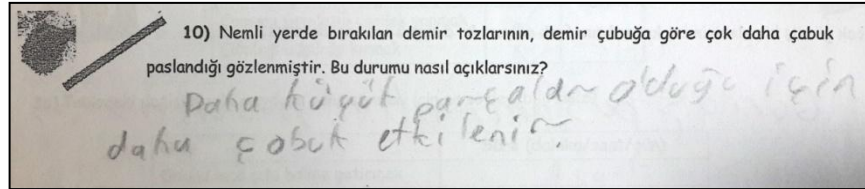 10) Nemli yerde bırakılan demir tozlarının, demir çubuğa göre çok daha çabuk
paslandığı gözlenmiştir. Bu durumu nasıl açıklarsınız?
Daha küçük parçaları olduğu için
daha çabuk etkilenir.